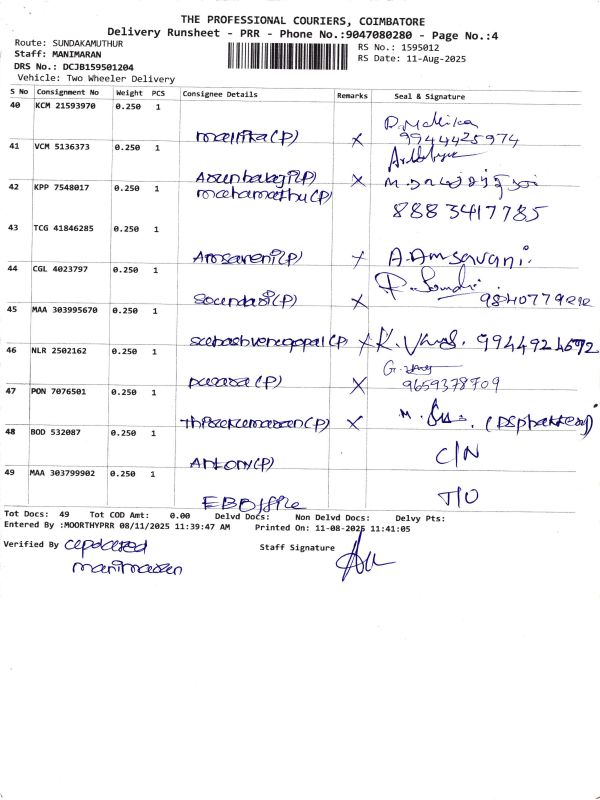 THE PROFESSIONAL COURIERS, COIMBATORE
Delivery Runsheet - PRR - Phone No.:9047080280 - Page No.:4
Route: SUNDAKAMUTHUR
Staff: MANIMARAN
DRS No.: DCJB159501204
Vehicle: Two Wheeler Delivery
RS No.: 1595012
RS Date: 11-Aug-2025
S No Consignment No Weight PCS Consignee Details Remarks Seal & Signature
40 KCM 21593970 0.250 1 mallika(P) X D.Mallika 9944425974
41 VCM 5136373 0.250 1 Arunbalaji(P) X
42 KPP 7548017 0.250 1 mahamathu(P) 8883417785
43 TCG 41846285 0.250 1 Amsaveni(P) X A.Amsavani.
44 CGL 4023797 0.250 1 Soundari(P) X
45 MAA 303995670 0.250 1 subashvenugopal(P) X 9944924592
46 NLR 2502162 0.250 1 (P) X 9659378709
47 PON 7076501 0.250 1 (P) X
48 BOD 532087 0.250 1 Antony(P) C/N
49 MAA 303799902 0.250 1 EB Office T/O
Tot Docs: 49 Tot COD Amt: 0.00 Delvd Docs: Non Delvd Docs: Delvy Pts:
Entered By :MOORTHYPRR 08/11/2025 11:39:47 AM Printed On: 11-08-2025 11:41:05
Verified By updated
manimaran
Staff Signature